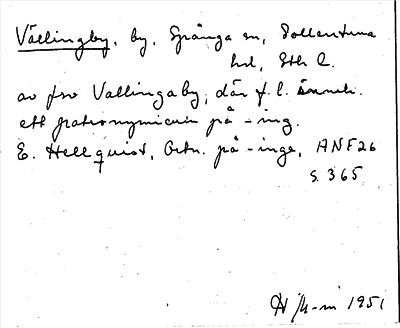 Vällingby, by, Spånga sn, Sollentuna
hd, Sth l.
av fsv Vallingaby, där f. l. inneh.
ett patronymicum på -ing.
E. Hellquist, Ortn. på -inge, ANF 26
s. 365
1951